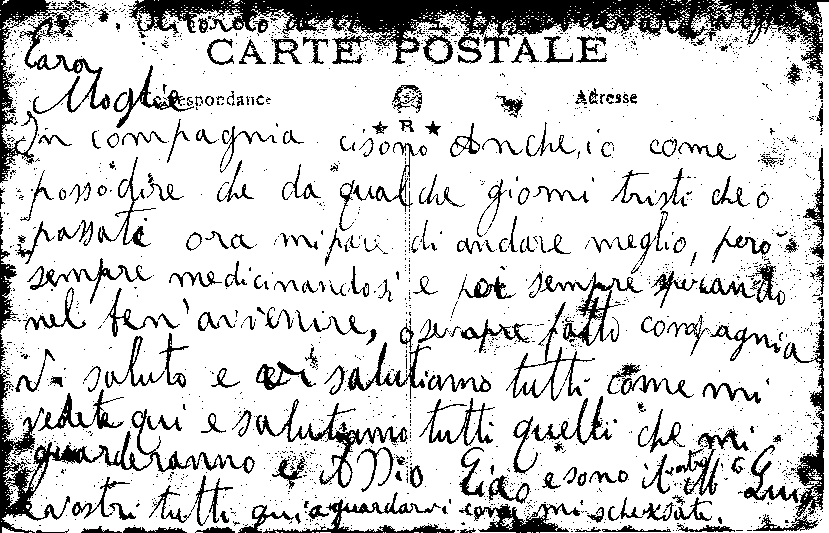 Ricordo di
CARTE POSTALE
Cara
Moglie
Correspondance Adresse
R
In compagnia cisono Anche, io come
posso dire che da qualche giorni tristi che o
passati ora mi pare di andare meglio, però
sempre medicinandosi e poi sempre sperando
nel ben'avvenire, o sempre fatto compagnia
Vi saluto e vi salutiamo tutti come mi
vedete qui e salutiamo tutti quelli che mi
guarderanno e ADDio Ciao e sono il vostro M
e vostri tutti qui a guardarvi come mi schersate.